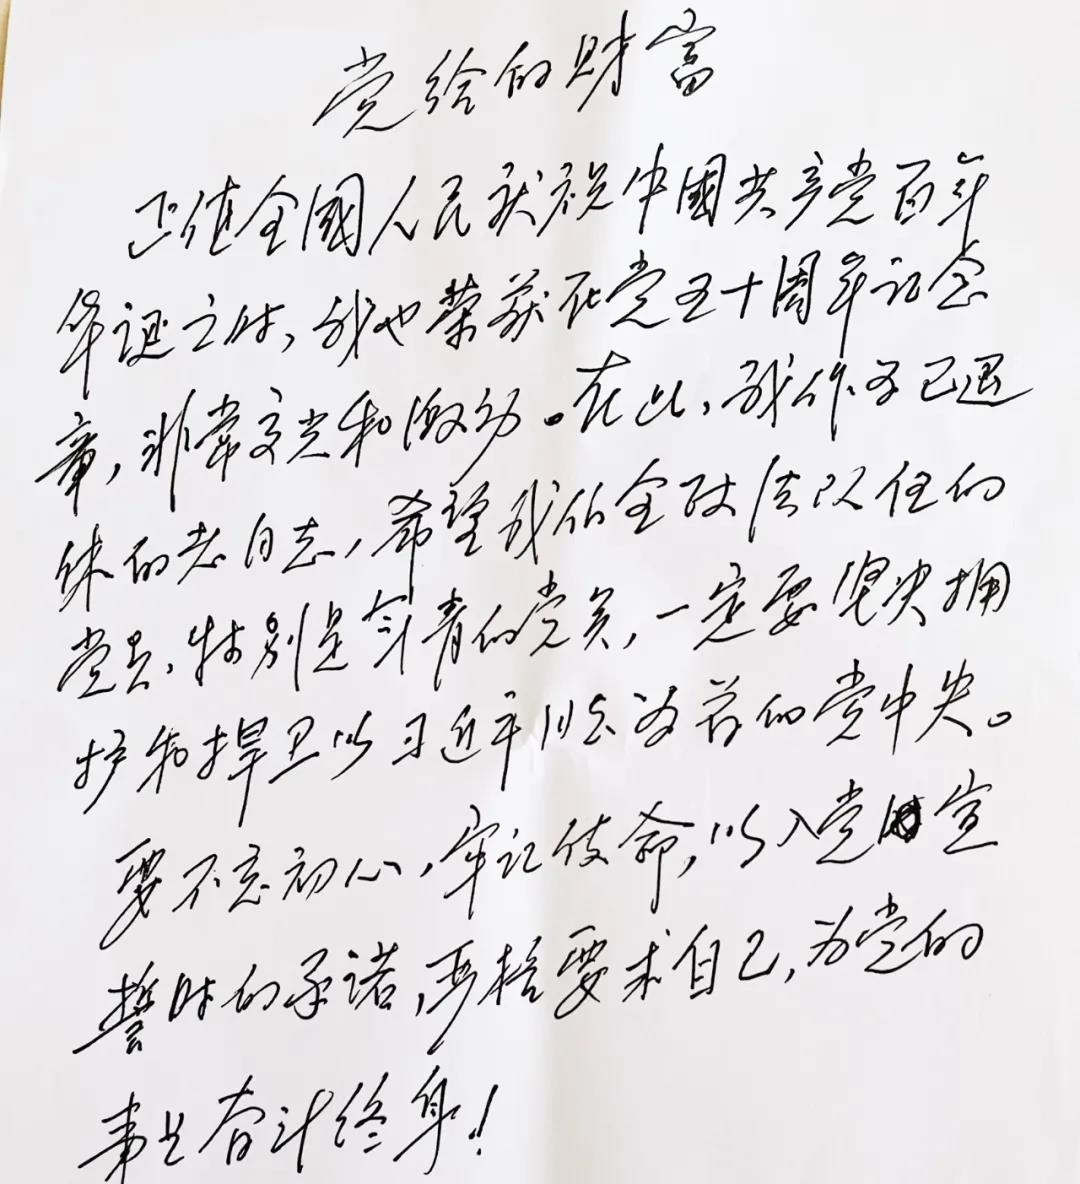 党给的财富
正值全國人民庆祝中國共产党百年
华诞之时,我也荣获在党五十周年记念
章,非常交光和激动。在此,我作为已退
休的老同志,希望我们全政法队伍的
党员,特别是年青的党员,一定要坚决拥
护和捍卫以习近平同志为首的党中央。
要不忘初心,牢记使命,以入党宣
誓时的承诺,严格要求自己,为党的
事业奋斗终身!